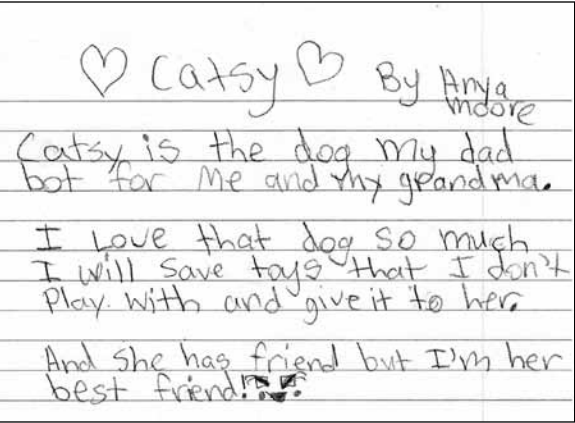 ♡ Catsy ♡ By Anya
moore
Catsy is the dog my dad
bot for me and my grandma.
I Love that dog so much
I will save toys that I don't
Play with and give it to her.
And she has friend but I'm her
best friend!